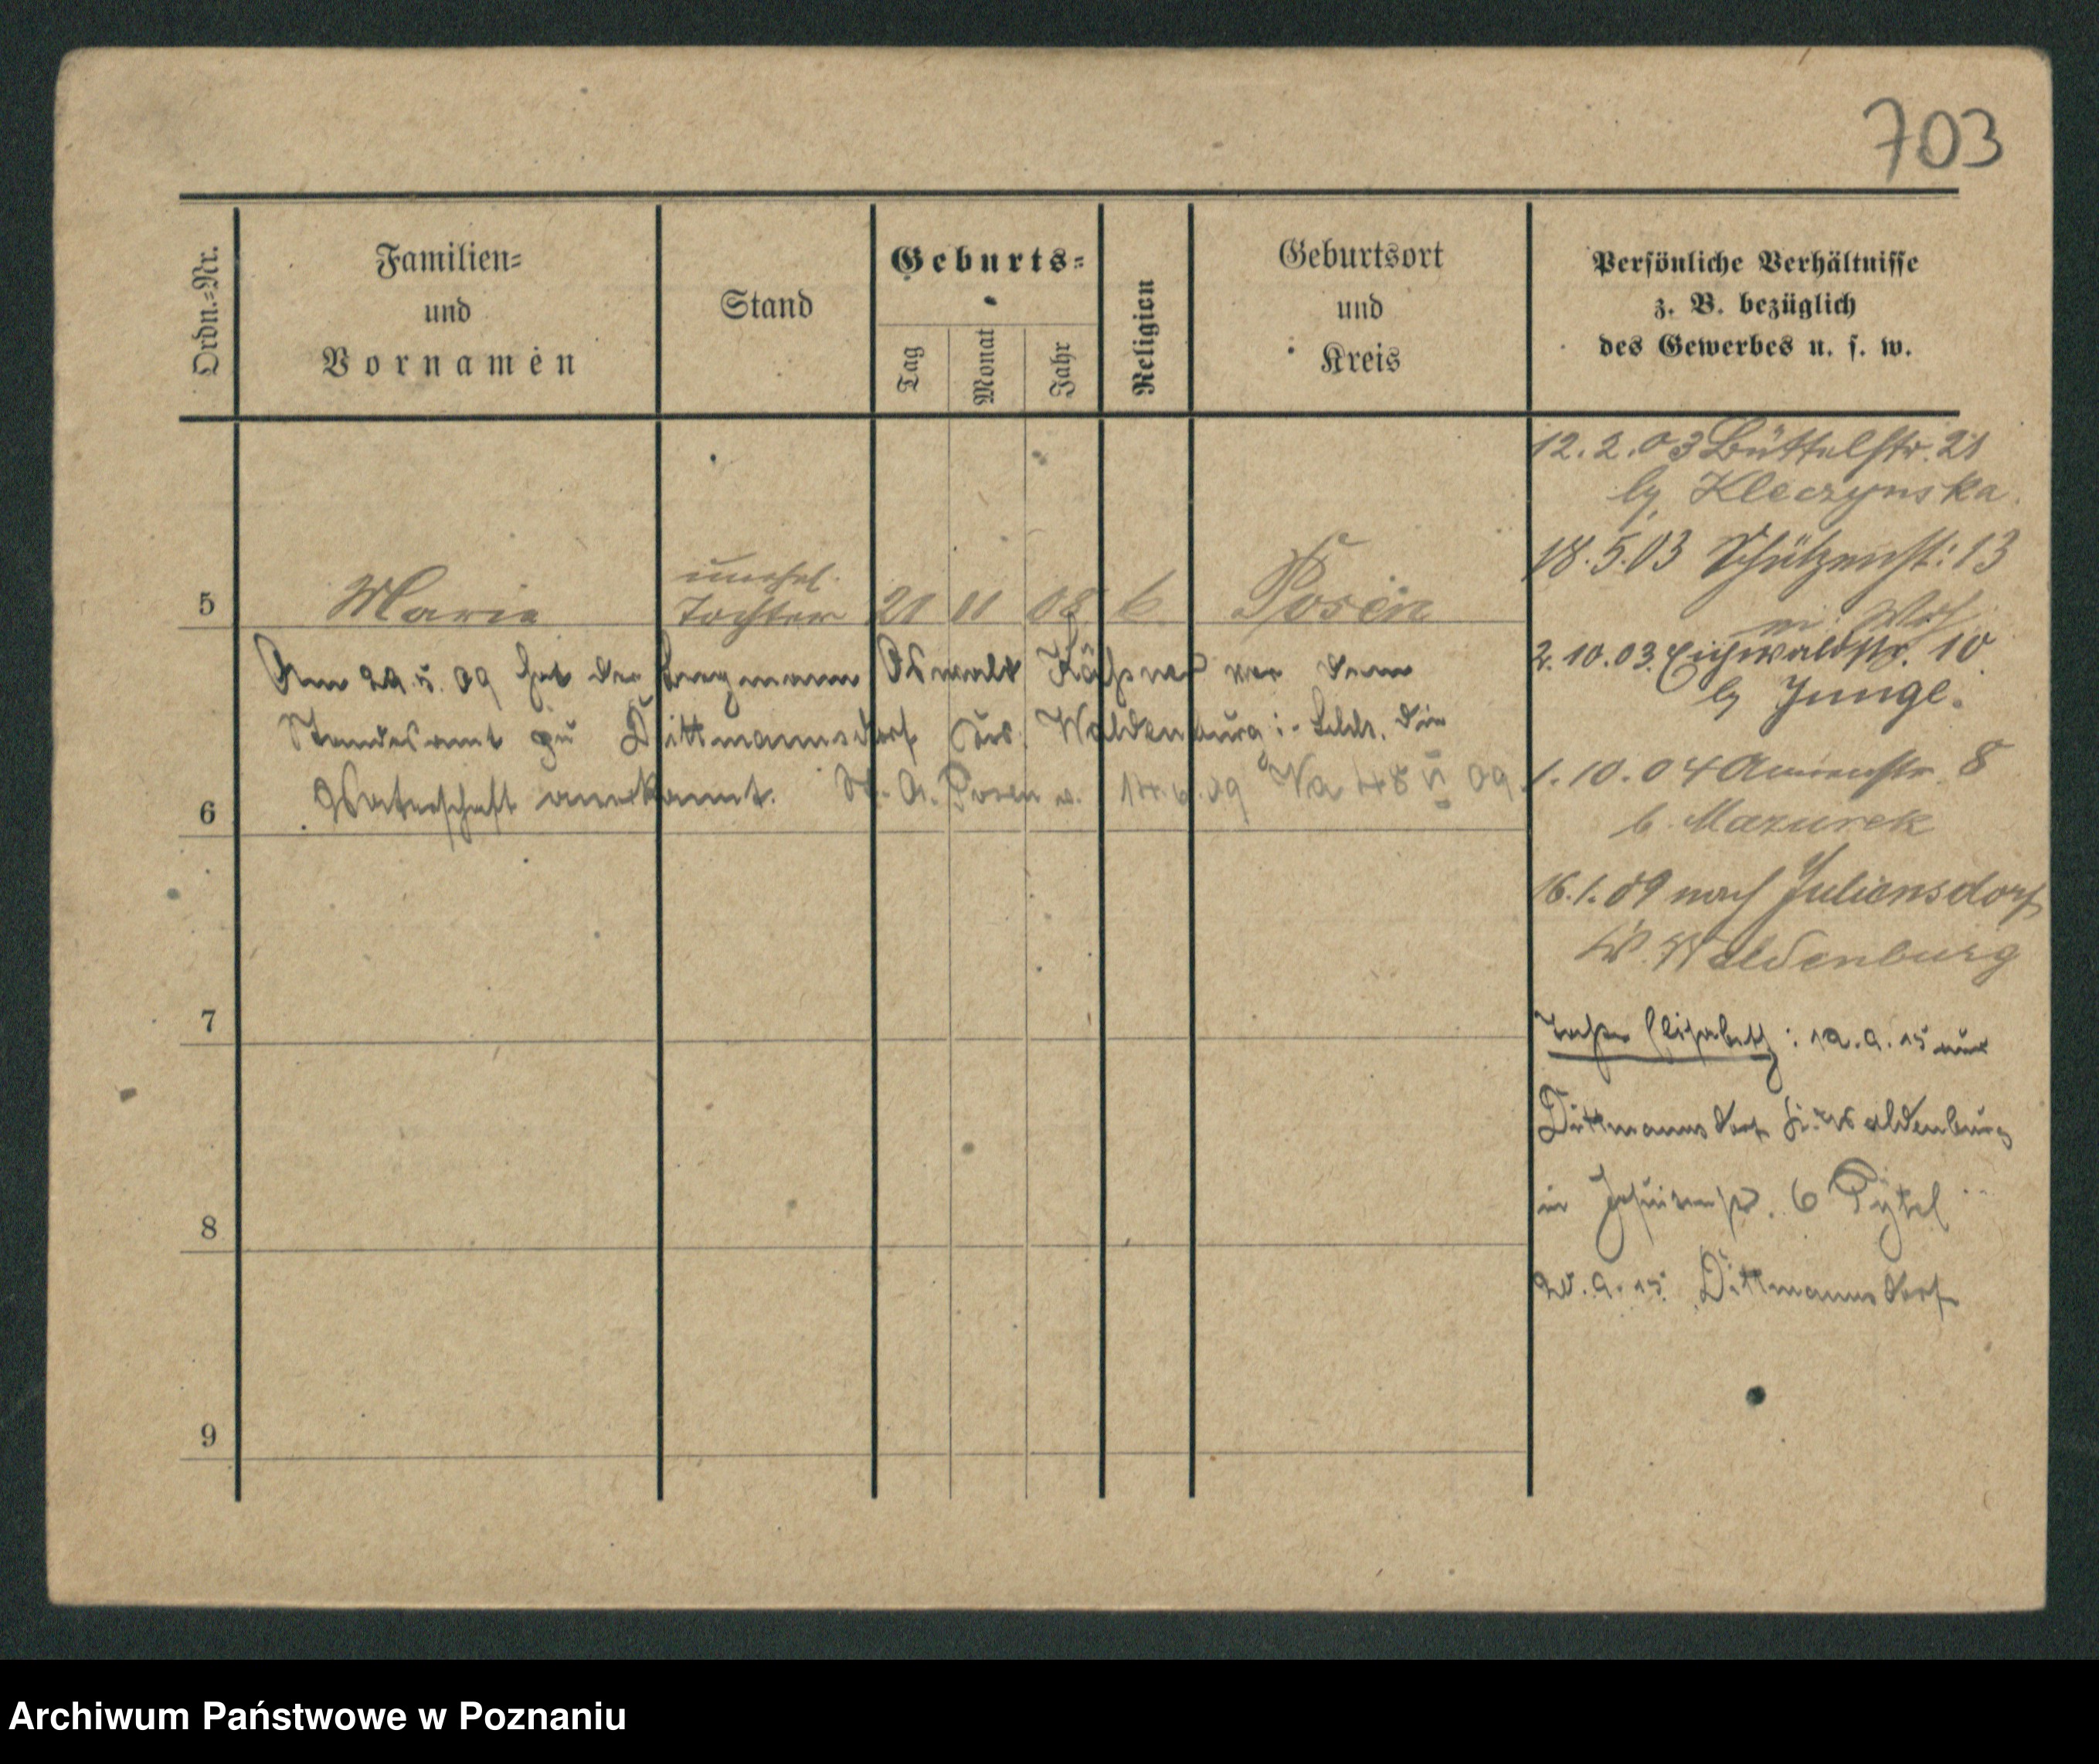 703
Ordn.-Nr.
Familien-
und
Vornamen
Stand
Geburts-
Tag
Monat
Jahr
Religion
Geburtsort
und
Kreis
Persönliche Verhältnisse
z. B. bezüglich
des Gewerbes u. s. w.
5
Maria
unehel.
Tochter
21 11 08
Posen
Am 29.5.09 hat der Bergmann Oswald vor dem
Standesamt zu Dittmannsdorf Waldenburg i. Schls. die
Vaterschaft anerkannt. St. A. Posen v. 14.6.09 Va 48 VI 09
6
7
8
9
12.2.03 Büttelstr. 21
by Kleczynska.
18.5.03 Schützenstr. 13
2.10.03. Eichwaldstr. 10
by Junge.
1.10.04 8
b. Mazurek
16.1.09 nach Juliansdorf
Waldenburg
Tochter Elisabeth: 12.9.15 aus
Dittmannsdorf Kr. Waldenburg
in Jesuitenstr. 6 Pytel
20.9.15. Dittmannsdorf
Archiwum Państwowe w Poznaniu